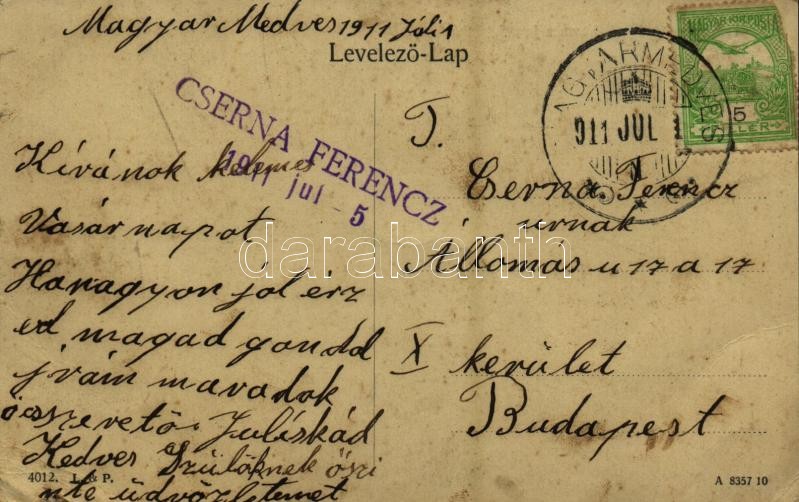 Magyar Medves 1911 Júli 1
Levelező-Lap
MAGYARMEDVES
911 JUL 1
MAGYAR KIR. POSTA
5
FILLÉR
CSERNA FERENCZ
1911 jul 5
Kívánok kelemes
Vasárnapot
Hanagyon jól érz
ed magad gondd
j rám maradok
öcszerető Juliskád
Kedves Szülöknek őszi
nte üdvözletemet
T.
Cserna Ferencz
úrnak
Állomás u 17 a 17
X kerület
Budapest
darabanth
4012. L. & P.
A 8357 10